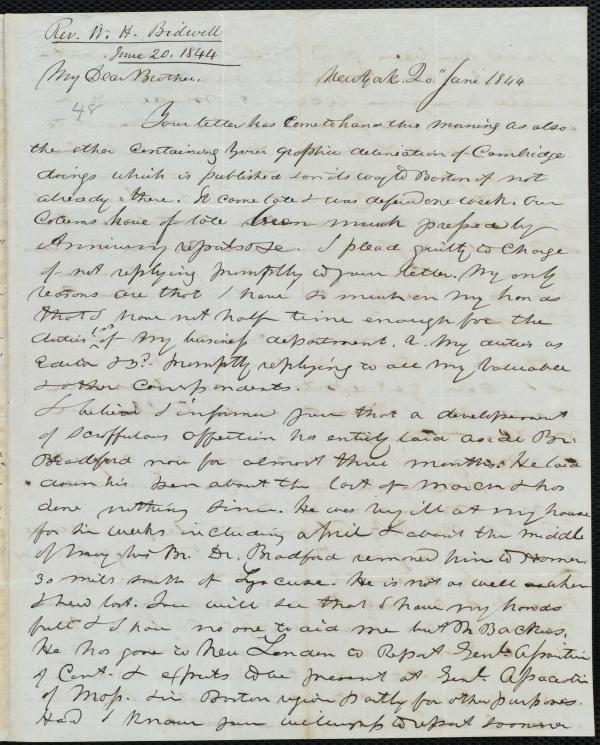 Rev. W. H. Bidwell
June 20. 1844
My Dear Brother. New York. 20" June 1844
48
Your letter has come to hand this morning as also
the other containing your graphic delineation of Cambridge
doings which is published & on its way to Boston if not
already there. It came late & was deferred one week. Our
Columns have of late been much pressed by
Anniversary reports &c. I plead guilty to charge
of not replying promptly to your letter. My only
reasons are that I have so much on my hands
that I have not half time enough for the
duties 1st of my business department. 2. My duties as
Editor & 3d. promptly replying to all my valuable
& other correspondents.
I believe I informed you that a developement
of scroffulous affection has entirely laid aside Br.
Bradford now for almost three months. He laid
down his pen about the last of March & has
done nothing since. He was very ill at my house
for six weeks including April & about the middle
of May his Br. Dr. Bradford removed him to Homer
30 miles south of Syracuse. He is not as well when
I heard last. You will see that I have my hands
full & I have no one to aid me but Mr Backus.
He has gone to New London to Report Genl. Association
of Cont. & expects to be present at Genl. Association
of Mass. in Boston region partly for other purposes.
Had I known your willingness to report sooner